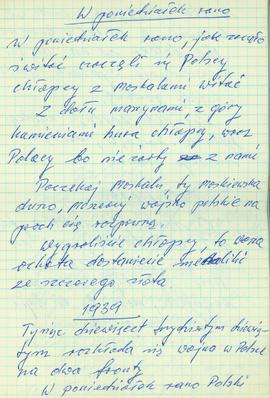 W poniedziałek rano
W poniedziałek rano, jak zaczęło
świtać zaczęli się Polscy
chłopcy z moskalami witać
Z dołu maszynami, z góry
kamieniami hura chłopcy, wraz
Polacy bo nie żarty z nami
Poczekaj Moskalu, ty moskiewska
duszo, wojsko polskie na
proch cię
Wygraliście chłopcy, to wasza
ochota dostaniecie medaliki
ze szczerego złota.
1939
Tysiąc dziewięćset trzydziestym dziewią-
tym rozkłada się wojna w Polsce
na dwa fronty
W poniedziałek rano Polski